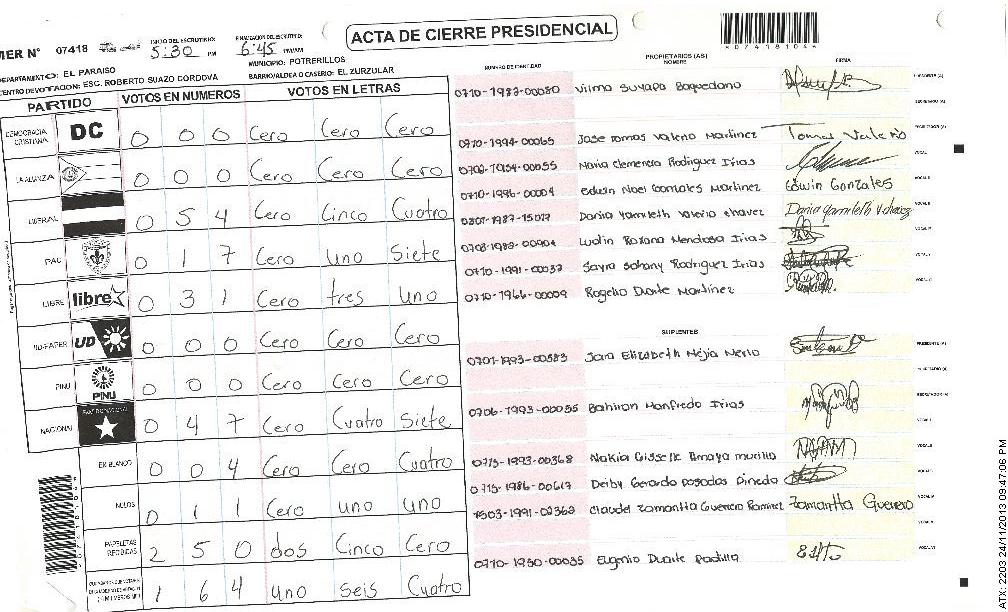 ACTA DE CIERRE PRESIDENCIAL
MER N° 07418 INICIO DEL ESCRUTINIO: 5:30 PM FINALIZACION DEL ESCRUTINIO: 6:45 PM/AM
07418104
DEPARTAMENTO: EL PARAISO MUNICIPIO: POTRERILLOS
CENTRO DE VOTACION: ESC. ROBERTO SUAZO CORDOVA BARRIO/ALDEA O CASERIO: EL ZURZULAR
PARTIDO VOTOS EN NUMEROS VOTOS EN LETRAS
DEMOCRACIA CRISTIANA DC 0 0 0 Cero Cero Cero
LA ALIANZA 0 0 0 Cero Cero Cero
LIBERAL 0 5 4 Cero Cinco Cuatro
PAC 0 1 7 Cero uno Siete
LIBRE libre 0 3 1 Cero tres uno
UD-FAPER UD 0 0 0 Cero Cero Cero
PINU PINU 0 0 0 Cero Cero Cero
NACIONAL 0 4 7 Cero Cuatro Siete
EN BLANCO 0 0 4 Cero Cero Cuatro
NULOS 0 1 1 Cero uno uno
PAPELETAS RECIBIDAS 2 5 0 dos Cinco Cero
1 6 4 uno seis Cuatro
NUMERO DE IDENTIDAD PROPIETARIOS (AS) NOMBRE FIRMA
0710-1983-00080 Vilma Suyapa Baquedano PRESIDENTE (A)
SECRETARIO (A)
0710-1994-00065 Jose Tomas Valerio Martinez Tomas Valerio ESCRUTADOR (A)
Maria Clemencia Rodriguez Irias VOCAL I
0710-1996-00004 Edwin Noel Gonzales Martinez Edwin Gonzales VOCAL II
Dania Yamileth Valerio Chavez VOCAL III
Ludin Roxana Mendosa Irias VOCAL IV
0710-1991-00037 Sayra Sohany Rodriguez Irias VOCAL V
0710-1966-00009 Rogelio Duarte Martinez VOCAL VI
SUPLENTES
0701-1993-00583 Jara Elizabeth Mejia Merlo PRESIDENTE (A)
SECRETARIO (A)
0706-1993-00055 Manfredo Irias ESCRUTADOR (A)
VOCAL I
0715-1993-00368 Nakia Gisselle Amaya murillo VOCAL II
Deiby Gerardo posadas Pineda VOCAL III
1503-1991-02363 Zamantha Guerrero Ramirez Zamantha Guerrero VOCAL IV
VOCAL V
0710-1950-00035 Eugenio Duarte Padilla VOCAL VI
ATX: 2203 24/11/2013 09:47:06 PM